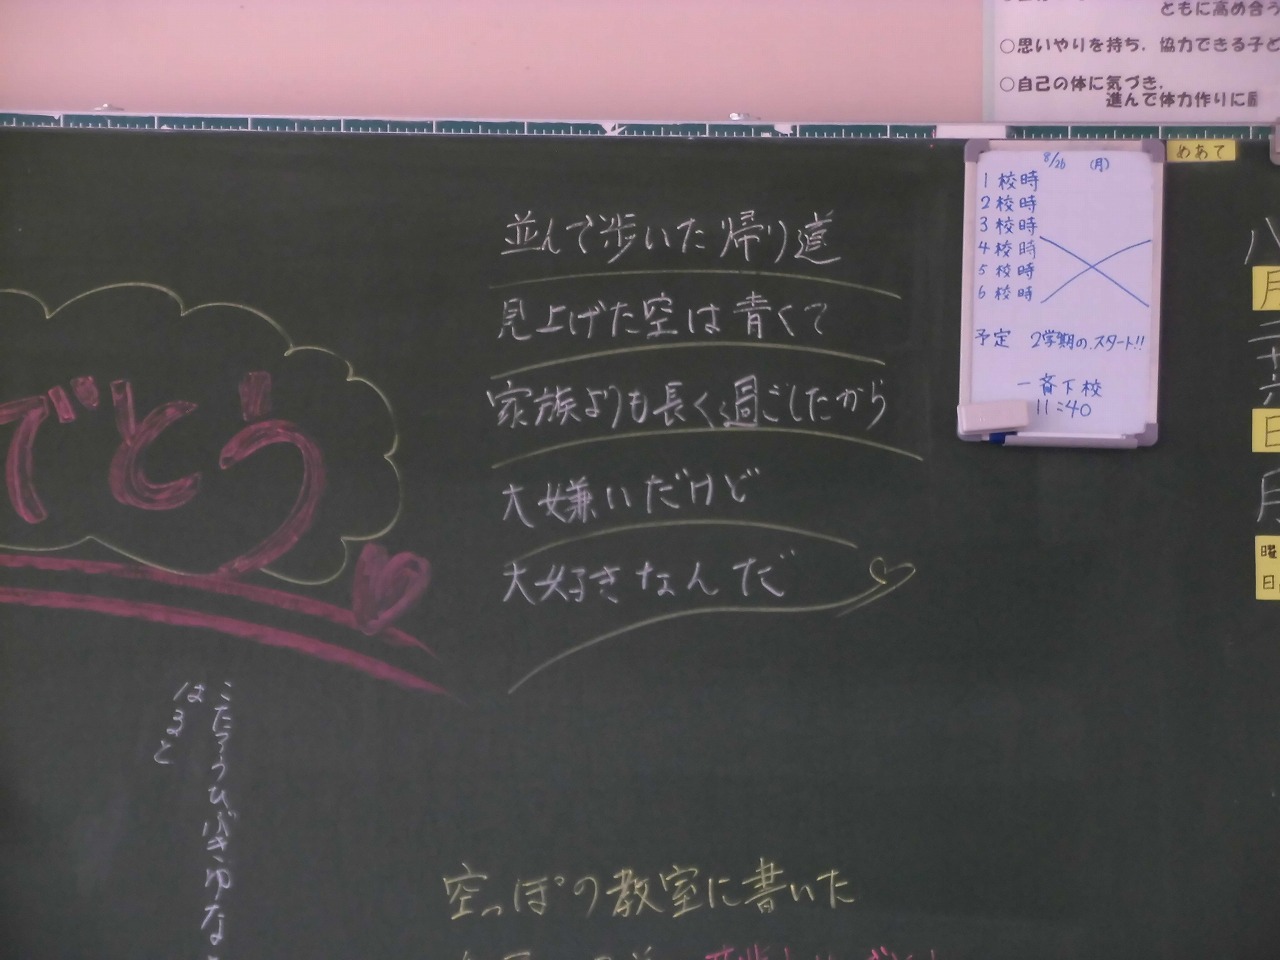 ともに高め合う
○思いやりを持ち、協力できる子ど
○自己の体に気づき、
進んで体力作りに
めあて
8/26 (月)
1校時
2校時
3校時
4校時
5校時
6校時
予定 2学期のスタート!!
一斉下校
11:40
並んで歩いた帰り道
見上げた空は青くて
家族よりも長く過ごしたから
大嫌いだけど
大好きなんだ
でとう
はると
空っぽの教室に書いた
月
日
月
曜
日